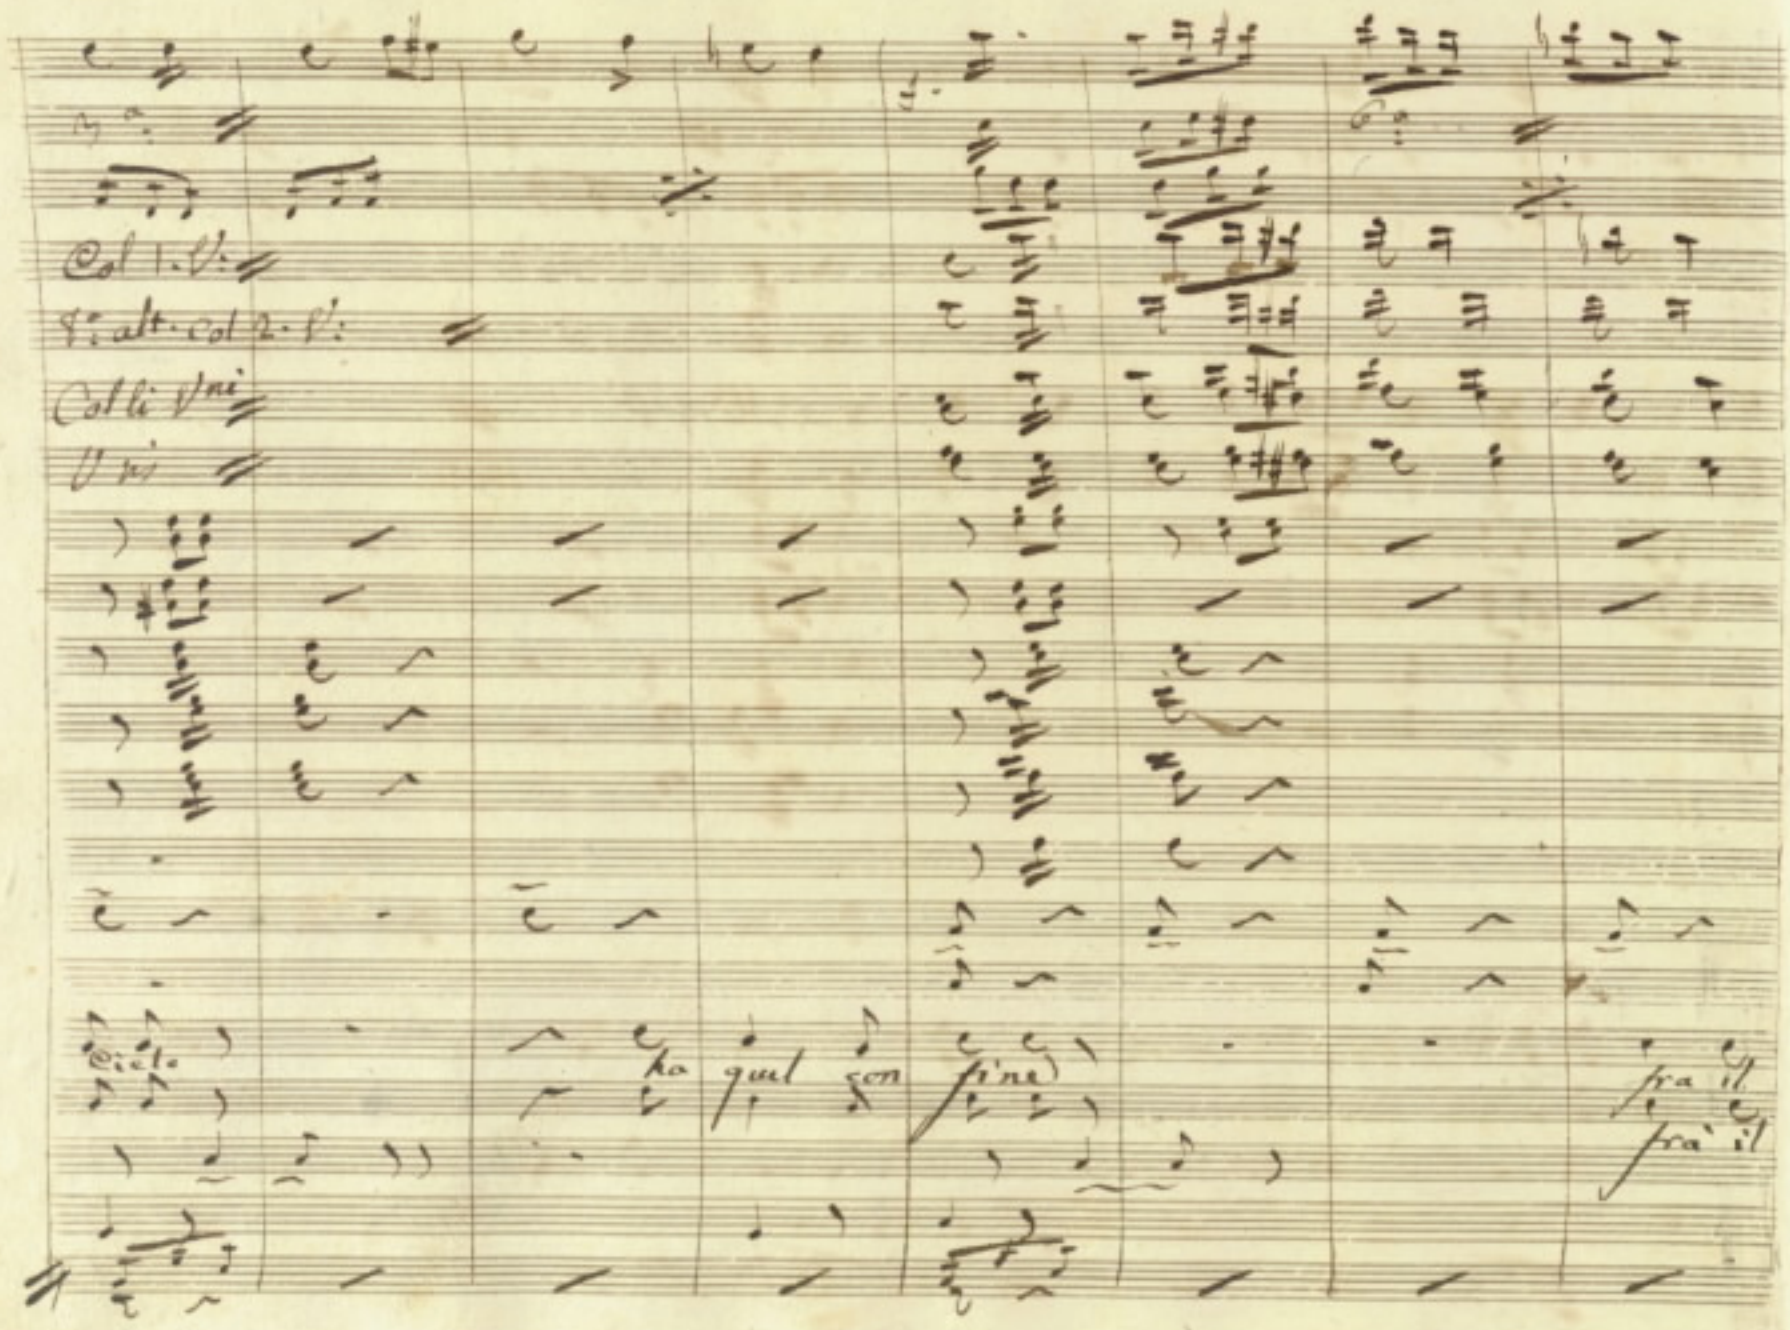 3ª:
6ª:
Col 1. V:
8ª: alt. col 2. V:
Colli Vni
Vni
Cielo
ha quel con fine
fra il
fra il